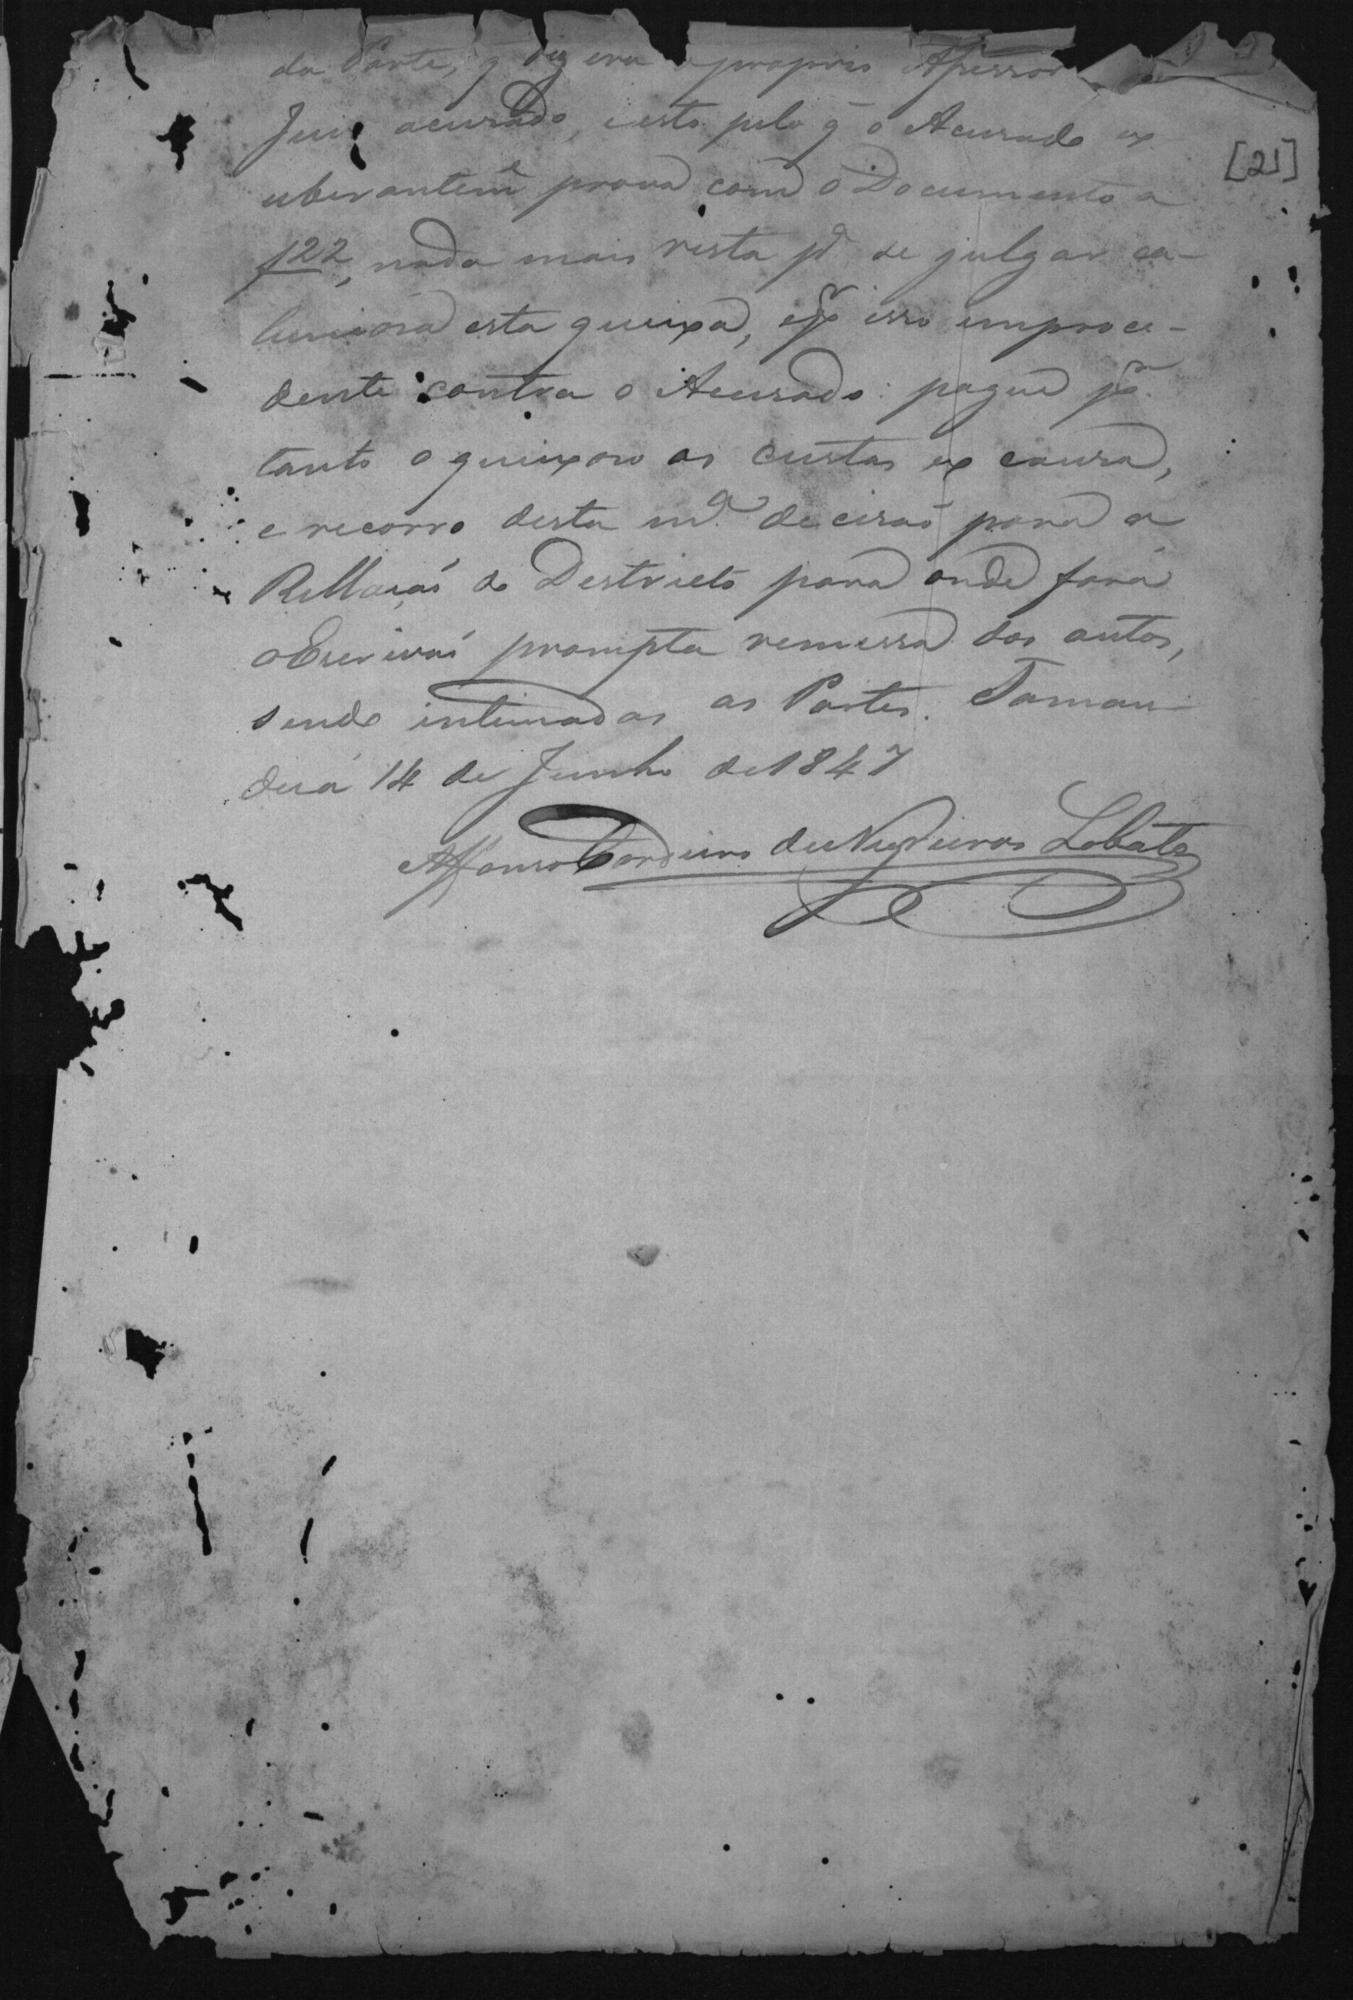 da Parte, q̃ diz era o proprio Assessor
Juis acusado, e isto pelo q̃ o Acusado ex
uberantem.e prova com o Documento a
f 22, nada mais resta p.a se julgar ca-
luniosa esta queixa, e p.r isso improce-
dente contra o Acusado: pague p.r
tanto o queixoso as custas ex causa,
e recorro desta m.a decisaõ para a
Rellaçaõ do Destricto para onde fará
o Escrivaõ prompta remessa dos autos,
sendo intimadas as Partes. Taman-
duá 14 de Junho de 1847
Affonso Cordeiro de Negreiros Lobato
[21]